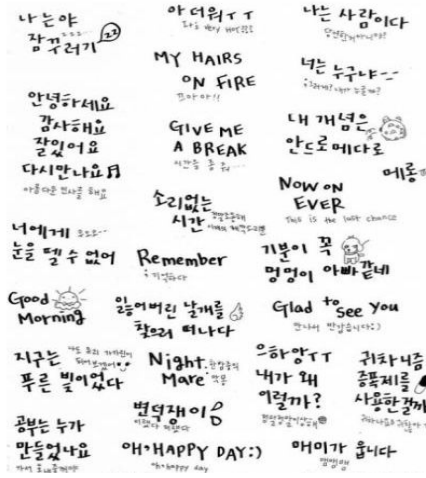 나는야
잠꾸러기
zz
아 더워ㅜㅜ
나는 사람이다
MY HAIRS
ON FIRE
너는 누구냐--
안녕하세요
감사해요
잘있어요
다시만나요
아름다운 인사를 해요
GIVE ME
A BREAK
시간을 좀 줘
내 개념은
안드로메다로
메롱
소리없는
시간
NOW ON
EVER
This is the last chance
너에게
눈을 뗄 수 없어
Remember
기억하다
기분이 꼭
멍멍이 아빠 같네
Good
Morning
잃어버린 날개를
찾으러 떠나다
Glad to see you
만나서 반갑습니다:)
지구는
푸른 빛이었다
Night
Mare
악몽
으하앙ㅜㅜ
내가 왜
이럴까?
귀차니즘
증폭제를
사용한걸까
공부는 누가
만들었나요
변덕쟁이
이랬다 저랬다
OH, HAPPY DAY:)
oh, happy day
매미가 웁니다
맴맴맴